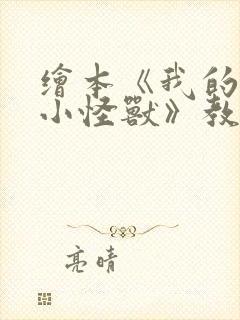 繪本《我的
小怪獸》教
亮晴